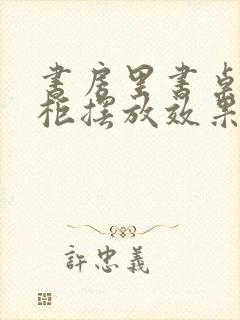 书房里书桌
柜摆放效果
許忠義